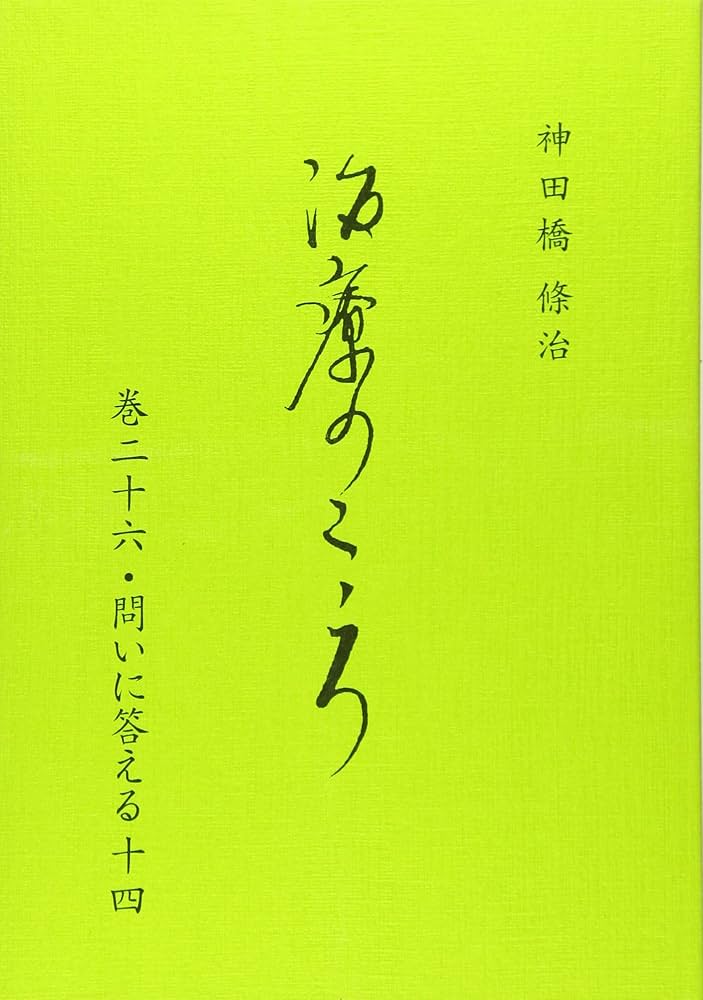 神田橋 條治
治療のこゝろ
巻二十六・問いに答える 十四